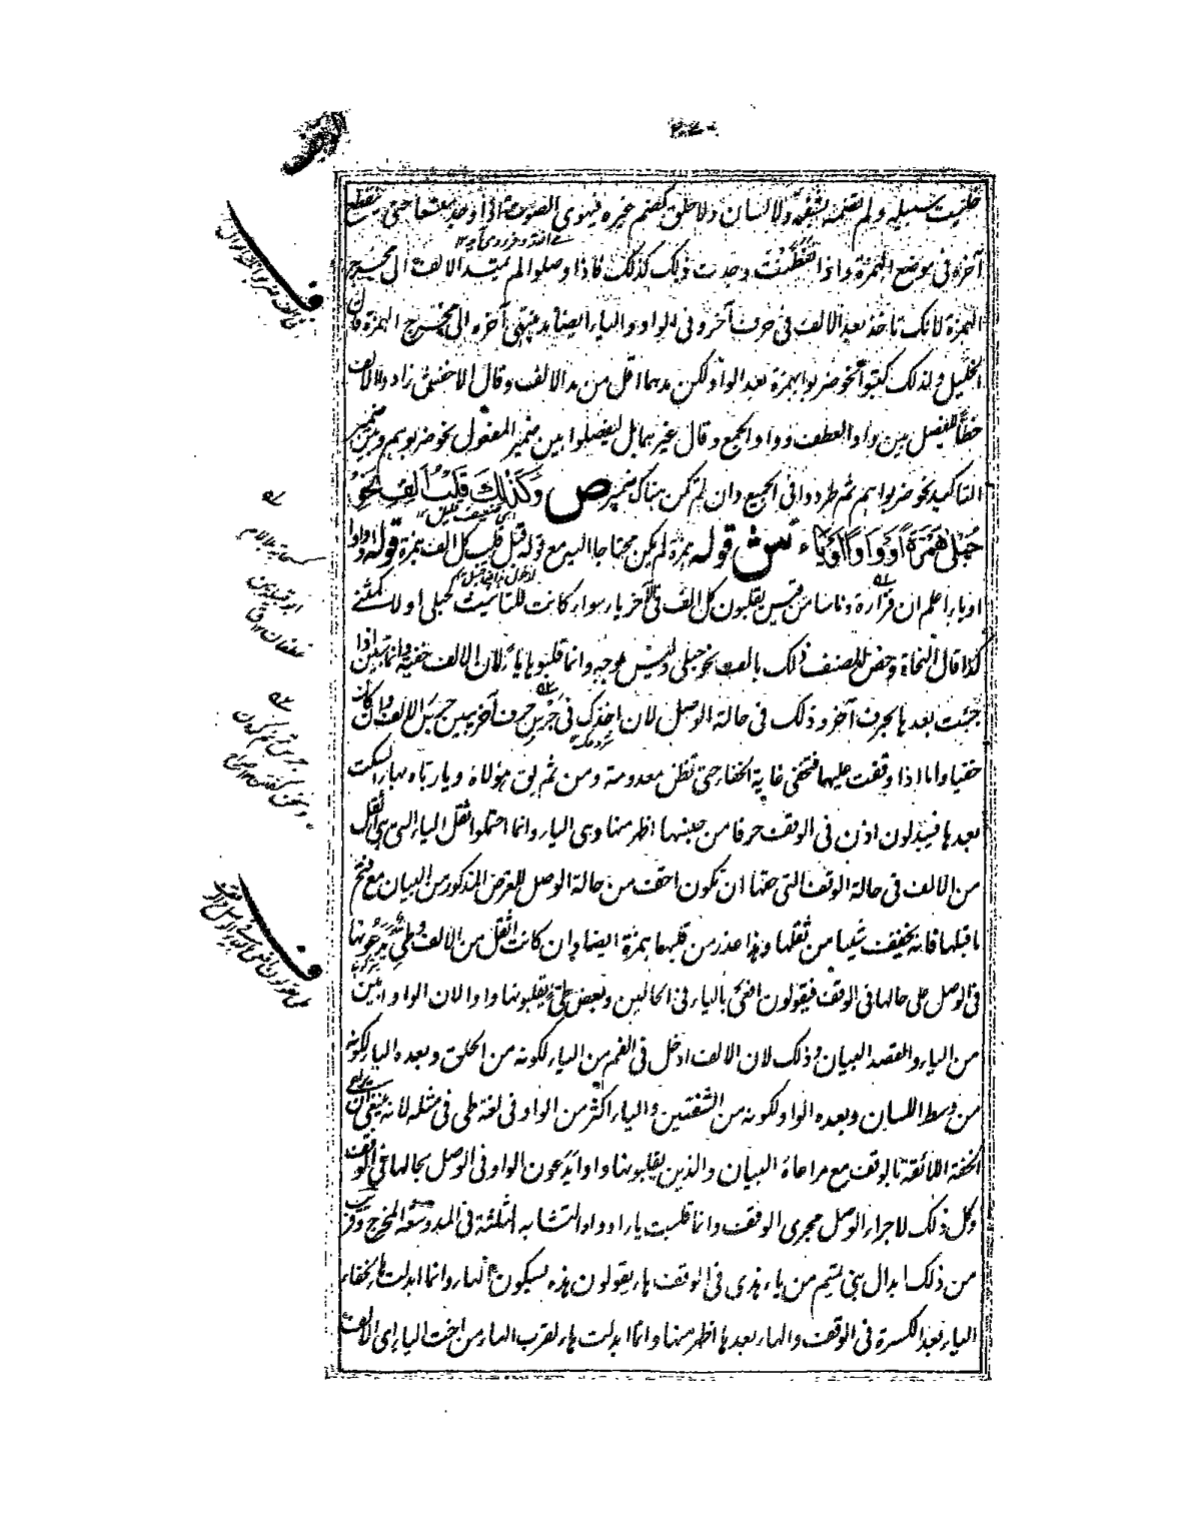 خليت سبيله ولم تضمه بشفة ولا لسان ولا حلق كضم غيره فيهوى الصوت اذا وجد متسعا حتى ينقطع
آخره في موضع الهمزة واذا تفطنت وجدت ذلك كذلك فاذا وصلوا لم يمتد الالف الى مخرج
الهمزة لانك تاخذ بعد الالف في حرف آخر وفي الواو والياء ايضا يد ينتهى آخره الى مخرج الهمزة قال
الخليل ولذلك كتبوا نحو ضربوا بهمزة بعد الواو لكن مدهما اقل من مد الالف وقال الاخفش زادوا الالف
خطا للفصل بين واو العطف وواو الجمع وقال غيرهما بل ليفصلوا بين ضمير المفعول نحو ضربوهم وبين ضمير
التاكيد نحو ضربوا هم ثم طردوا في الجميع وان لم تكن هناك ضمير ص وَكَذٰلِكَ قَلْبُ اَلِفِ نَحْوِ
حُبْلٰى هَمْزَةً اَوْ وَاوًا اَوْ يَاءً ش قوله همزة لم يكن محتاجا اليه مع قوله قبل قلب كل الف همزة قوله او واوا
او ياء اعلم ان فزارة وناسا من قيس يقلبون كل الف في الآخر ياء سواء كانت للتانيث كحبلى او لا كمثنى
كذا قال النحاة وخص المصنف ذلك بالف نحو حبلى وليس بوجه وانما قلبوها ياء لان الالف خفية وانما تبين اذا
جئت بعدها بحرف آخر وذلك في حالة الوصل لان اخذك في جرس حرف آخر يبين جرس الالف وان كان
خفيا واما اذا وقفت عليها فتخفى غاية الخفاء حتى تظن معدومة ومن ثم يق هؤلاه ويا رباه بهاء السكت
بعدها فيبدلون اذن في الوقف حرفا من جنسها اظهر منها وهى الياء وانما احتملوا ثقل الياء التى هى اثقل
من الالف في حالة الوقف التى حقها ان تكون اخف من حالة الوصل للغرض المذكور من البيان مع فتح
ما قبلها فانه يخفف شيئا من ثقلها وهذا عذر من قلبها همزة ايضا وان كانت اثقل من الالف وطى يدعونها
في الوصل على حالها في الوقف فيقولون افعى بالياء في الحالين وبعض طى يقلبونها واوا لان الواو ابين
من الياء والقصد البيان وذلك لان الالف ادخل في الفم من الياء لكونه من الحلق وبعده الياء لكونه
من وسط اللسان وبعده الواو لكونه من الشفتين والياء اكثر من الواو في لغة طى في مثله لانه ينبغى ان يراعى
الخفة اللائقة بالوقف مع مراعاة البيان والذين يقلبونها واوا يدعون الواو في الوصل بحالها في الوقف
وكل ذلك لاجراء الوصل مجرى الوقف وانما قلبت ياء او واوا لتشابه الثلثة في المد وسعة المخرج وقريب
من ذلك ابدال بنى تميم من ياء هذى في الوقف هاء يقولون هذه بسكون الهاء وانما ابدلت هاء لخفاء
الياء بعد الكسرة في الوقف والهاء بعدها اظهر منها وانما ابدلت هاء لقرب الهاء من اخت الياء اى الالف